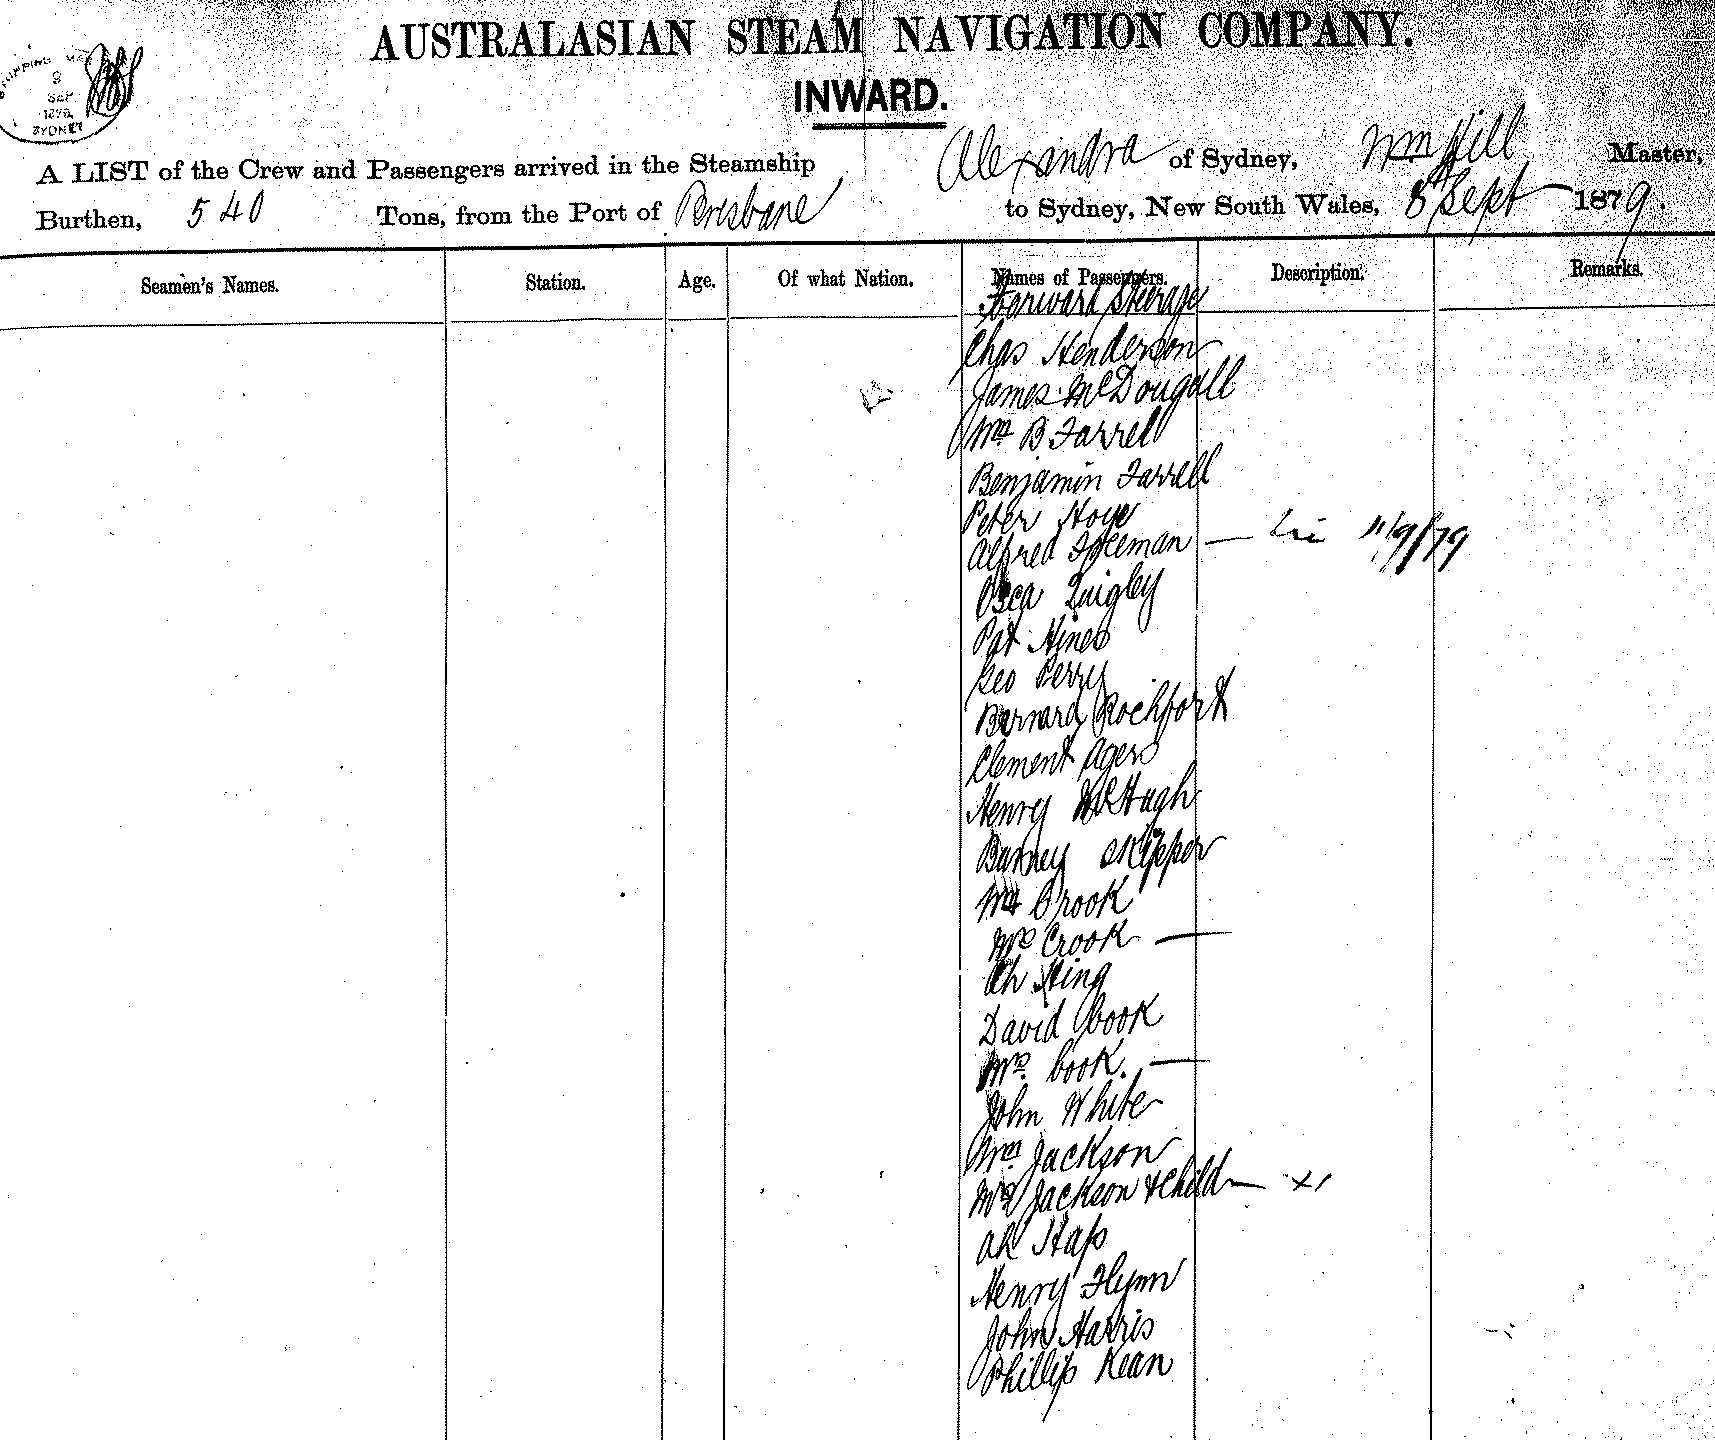 AUSTRALASIAN STEAM NAVIGATION COMPANY.
INWARD.
SHIPPING
9
SEP
1879
SYDNEY
A LIST of the Crew and Passengers arrived in the Steamship Alexandra of Sydney, Wm Hill Master,
Burthen, 540 Tons, from the Port of Brisbane to Sydney, New South Wales, 8 Sept 1879.
Seamen's Names. Station. Age. Of what Nation. Names of Passengers. Description. Remarks.
Forward Steerage
Chas Henderson
James McDougall
Mrs B Farrell
Benjamin Farrell
Peter Hoye
Alfred Freeman — 11/9/79
Quigley
Pat Hines
Geo Perry
Bernard Rochfort
Clement Agers
Henry McHugh
Barney Skipper
Mr Crook
Mrs Crook —
Ah Hing
David Cook
Mrs. Cook. —
John White
Jackson
Mrs Jackson & Child — x1
Ah Hap
Henry Flynn
John Harris
Phillip Kean